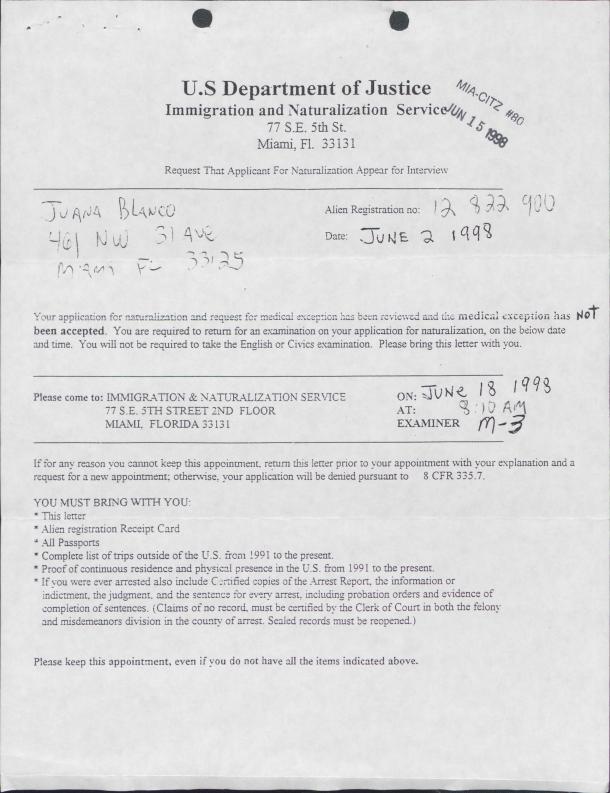 U.S Department of Justice
Immigration and Naturalization Service
MIA-CITZ #80
JUN 15 1998
77 S.E. 5th St.
Miami, Fl. 33131
Request That Applicant For Naturalization Appear for Interview
JUANA BLANCO
461 NW 31 AVE
MIAMI FL 33125
Alien Registration no: 12 822 900
Date: JUNE 2 1998
Your application for naturalization and request for medical exception has been reviewed and the medical exception has NOT
been accepted. You are required to return for an examination on your application for naturalization, on the below date
and time. You will not be required to take the English or Civics examination. Please bring this letter with you.
Please come to: IMMIGRATION & NATURALIZATION SERVICE
77 S.E. 5TH STREET 2ND FLOOR
MIAMI, FLORIDA 33131
ON: JUNE 18 1998
AT: 8:10 AM
EXAMINER M-3
If for any reason you cannot keep this appointment, return this letter prior to your appointment with your explanation and a
request for a new appointment; otherwise, your application will be denied pursuant to 8 CFR 335.7.
YOU MUST BRING WITH YOU:
* This letter
* Alien registration Receipt Card
* All Passports
* Complete list of trips outside of the U.S. from 1991 to the present.
* Proof of continuous residence and physical presence in the U.S. from 1991 to the present.
* If you were ever arrested also include Certified copies of the Arrest Report, the information or
indictment, the judgment, and the sentence for every arrest, including probation orders and evidence of
completion of sentences. (Claims of no record, must be certified by the Clerk of Court in both the felony
and misdemeanors division in the county of arrest. Sealed records must be reopened.)
Please keep this appointment, even if you do not have all the items indicated above.